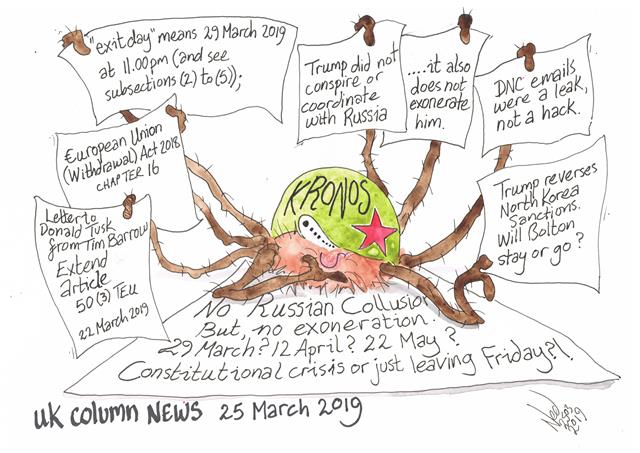 "exit day" means 29 March 2019
at 11.00pm (and see
subsections (2) to (5));
European Union
(Withdrawal) Act 2018
CHAPTER 16
Letter to
Donald Tusk
from Tim Barrow
Extend
article
50 (3) TEU
22 March 2019
Trump did not
conspire or
coordinate
with Russia
.....it also
does not
exonerate
him.
DNC emails
were a leak,
not a hack.
Trump reverses
North Korea
Sanctions.
Will Bolton
stay or go?
KRONOS
No Russian Collusio
But, no exoneration.
29 March? 12 April? 22 May?
Constitutional crisis or just leaving Friday?!
UK COLUMN NEWS 25 March 2019
2019